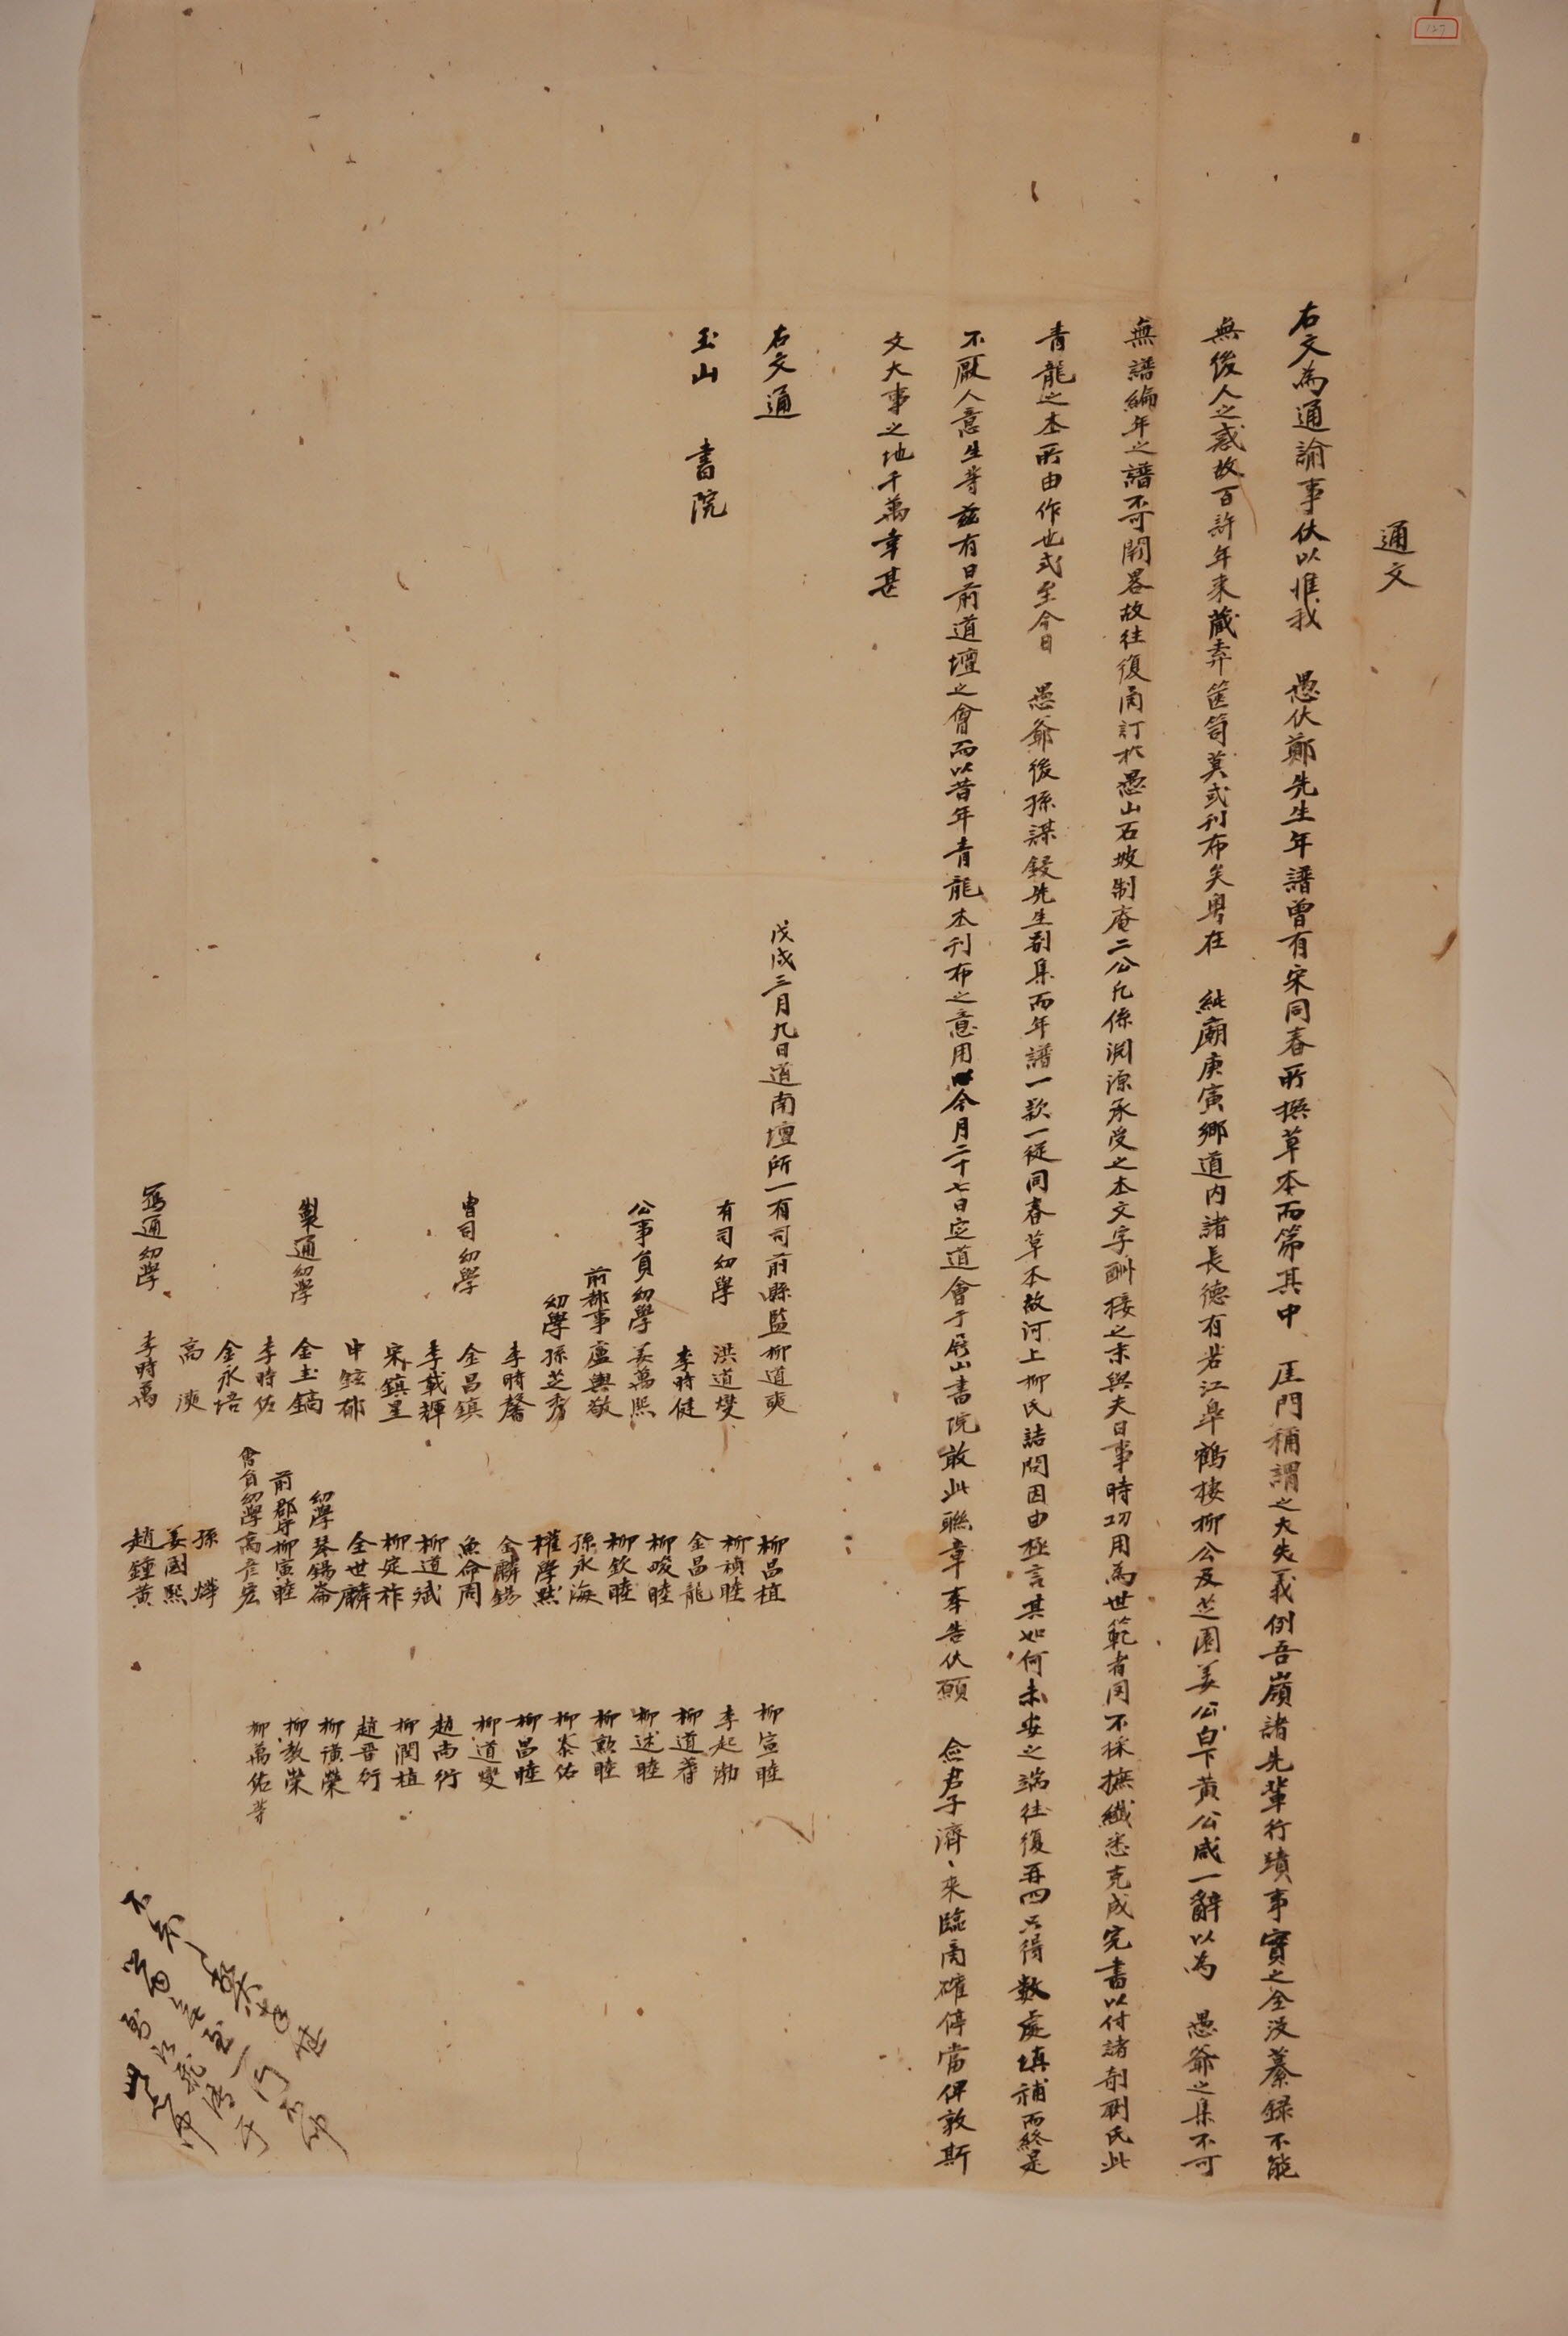 127
通文
右文為通諭事伏以惟我 愚伏鄭先生年譜曾有宋同春所撰草本而第其中 厓門稱謂之大失義例吾嶺諸先輩行蹟事實之全沒纂錄不能
無後人之惑故百許年来蔵弆篋笥莫或刊布矣粤在 純廟庚寅鄉道内諸長德有若江皐鶴棲柳公及芝園姜公白下黄公咸一辭以為 愚爺之集不可
無譜編年之譜不可闕畧故往復商訂於愚山石坡制庵二公凡係淵源承受之本文字酬接之末與夫日事時功用為世範者罔不採摭纖悉克成完書以付諸剞劂氏此
青龍之本所由作也式至今日 愚爺後孫謀鋟先生别集而年譜一款一從同春草本故河上柳氏詰問因由極言其如何未安之端往復再四只得數處填補而終是
不厭人意生等玆有日前道壇之會而以昔年青龍本刊布之意用以今月二十七日定道會于屏山書院敢此聯章奉告伏願 僉君子濟、来臨商確停當俾敦斯
文大事之地千萬幸甚
右文通
玉山 書院
戊戌三月九日道南壇所一有司前縣監柳道奭
有司幼學 洪道燮
李時健
公事員幼學 姜萬熙
前都事 盧興敬
幼學 孫芝秀
李時馨
曺司幼學 金昌鎮
李載輝
宋鎮星
申鉉郁
製通幼學 金圭鎬
李時佐
金永培
高
寫通幼學 李時萬
柳昌植
柳禎睦
金昌龍
柳畯睦
柳欽睦
孫永海
權學點
金麟錫
魚命周
柳道斌
柳定祚
全世麟
幼學琴錫崙
前郡守柳寅睦
會員幼學高彦宏
孫 燁
姜國熙
趙鍾黄
柳宣睦
李起渤
柳道著
柳述睦
柳勲睦
柳泰佑
柳昌睦
柳道燮
趙尚衍
柳潤植
趙晋衍
柳璜榮
柳教榮
柳萬佑等